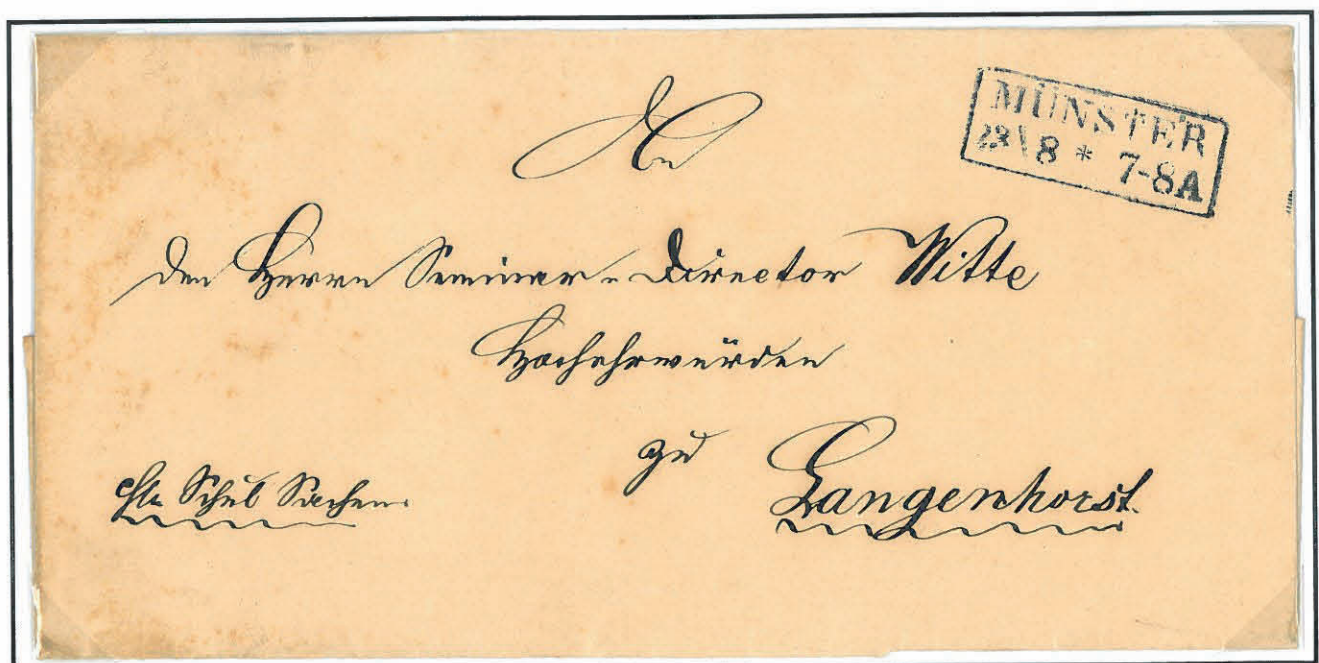 An
MÜNSTER
23 \ 8 * 7-8A
den Herrn Seminar-Director Witte
Hochehrwürden
zu
Langenhorst.
Schul Sachen.